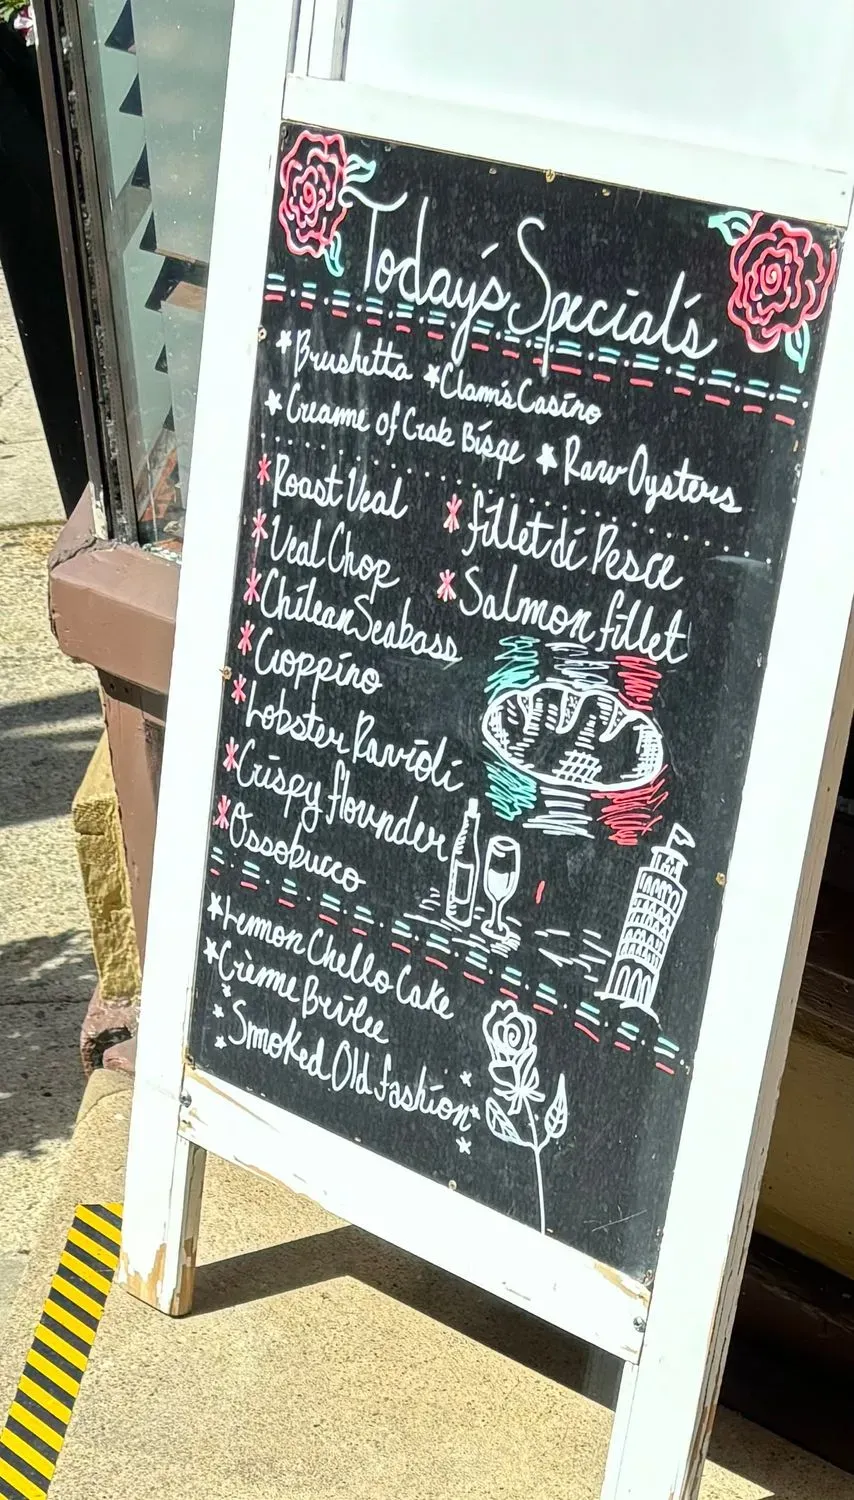 Today's Special's
Brushetta Clam's Casino
Creame of Crab Bisqe Raw Oysters
Roast Veal
Veal Chop
Chilean Seabass
Cioppino
Lobster Ravioli
Crispy flounder
Ossobucco
fillet di Pesce
Salmon fillet
Lemon Chello Cake
Crème Brülee
Smoked Old fashion